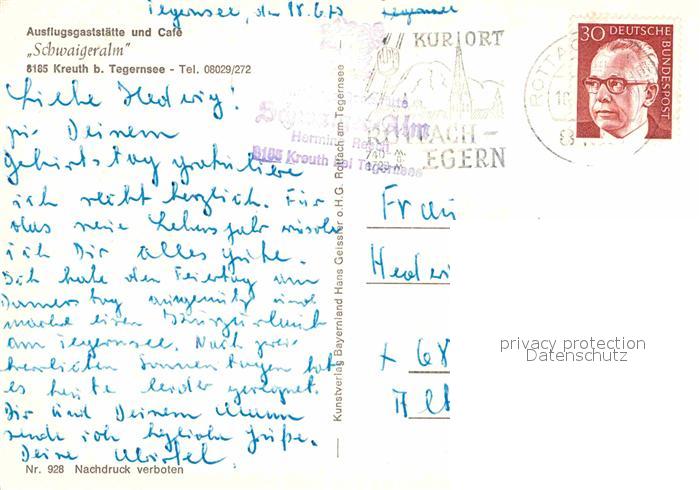 Tegernsee, den 18.6.73
Tegernsee
Ausflugsgaststätte und Café
„Schwaigeralm"
8185 Kreuth b. Tegernsee - Tel. 08029/272
Liebe Hedwig!
zu Deinem
Geburtstag gratuliere
ich recht herzlich. Für
das neue Lebensjahr wünsche
ich Dir alles Gute.
Ich habe den Feiertag am
Donnerstag ausgenützt und
mache einen Kurzurlaub
am Tegernsee. Nach zwei
herrlichen Sonnentagen hat
es heute leider geregnet.
Dir und Deinem Mann
sende ich herzliche Grüße.
Deine
Nr. 928 Nachdruck verboten
Kunstverlag Bayernland Hans Geissler o.H.G. Rottach am Tegernsee
KURORT
ROTTACH-
EGERN
8185 Kreuth bei Tegernsee
ROTTA
30 DEUTSCHE
BUNDESPOST
Frau
Hedwi
x 68
privacy protection
Datenschutz